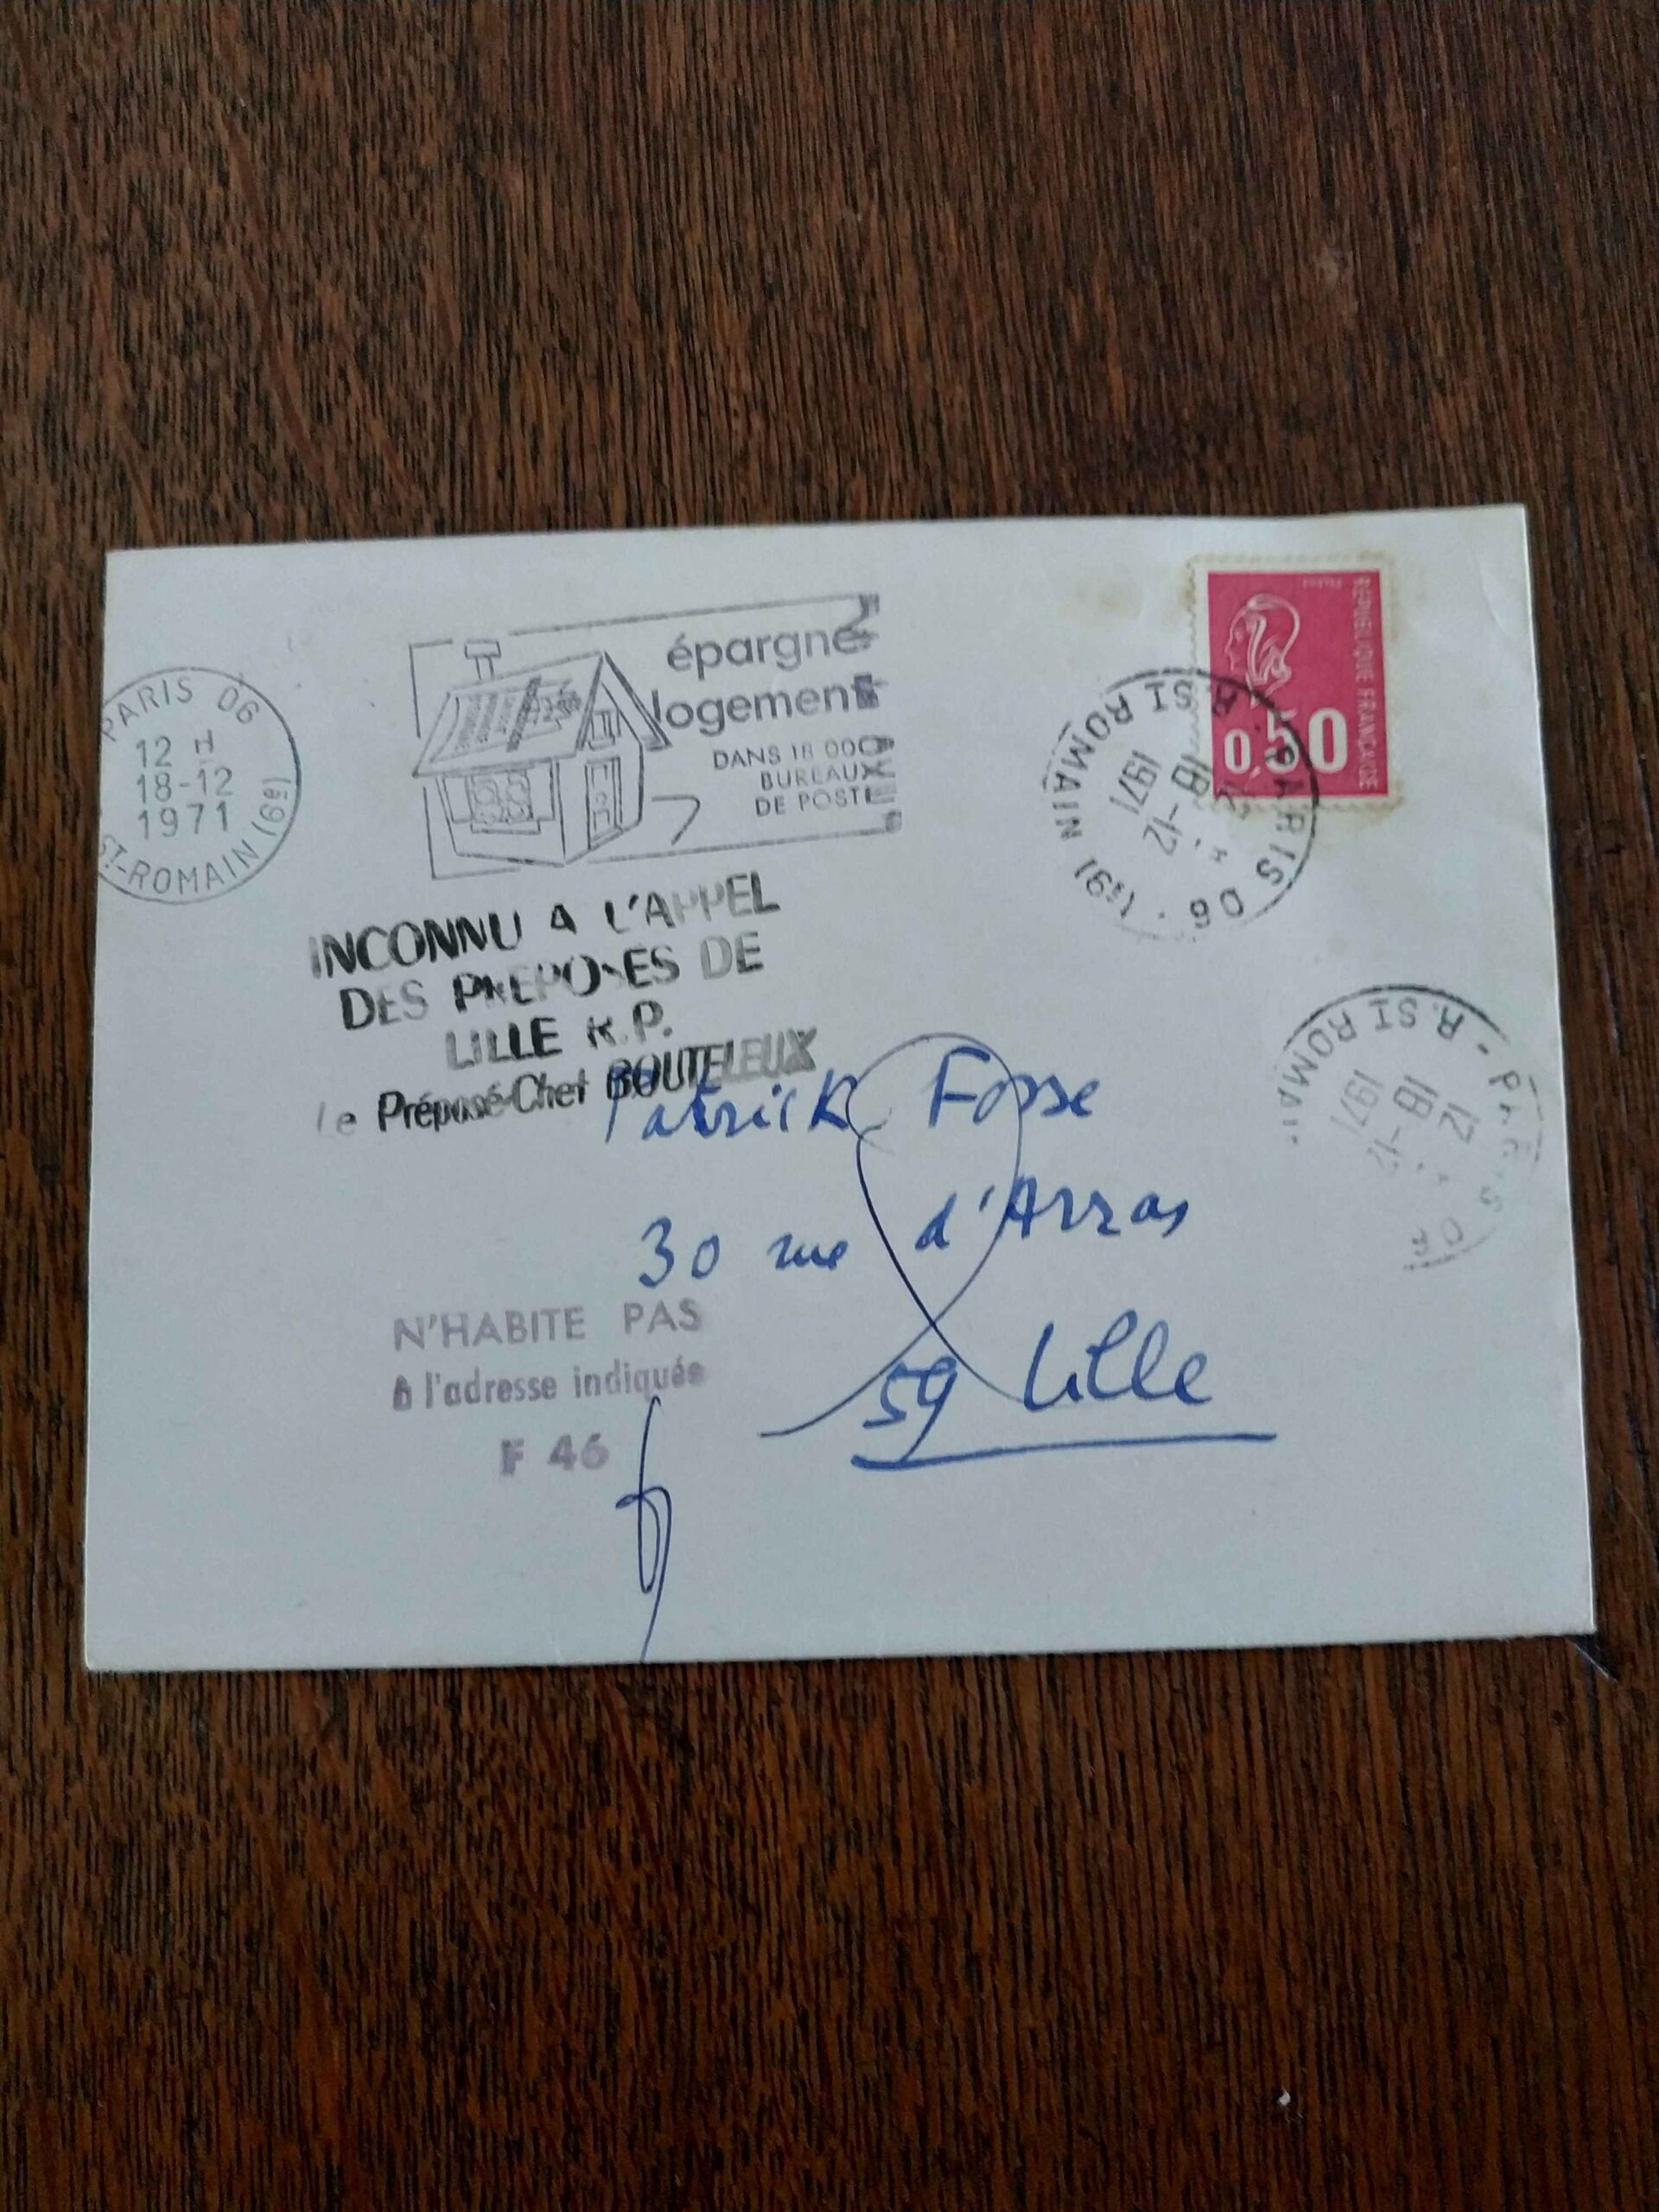 PARIS 06
12 H
18-12
1971
ST-ROMAIN (6e)
épargne
logement
DANS 18 000
BUREAUX
DE POSTE
REPUBLIQUE FRANÇAISE
0,50
PARIS 06
18-12
1971
R. ST ROMAIN (6e)
INCONNU A L'APPEL
DES PREPOSES DE
LILLE R.P.
Le Préposé-Chef BOUTELEUX
PARIS 06
12
18-12
1971
R. ST ROMAIN
Patrick Fosse
30 rue d'Arras
59 Lille
N'HABITE PAS
à l'adresse indiquée
F 46